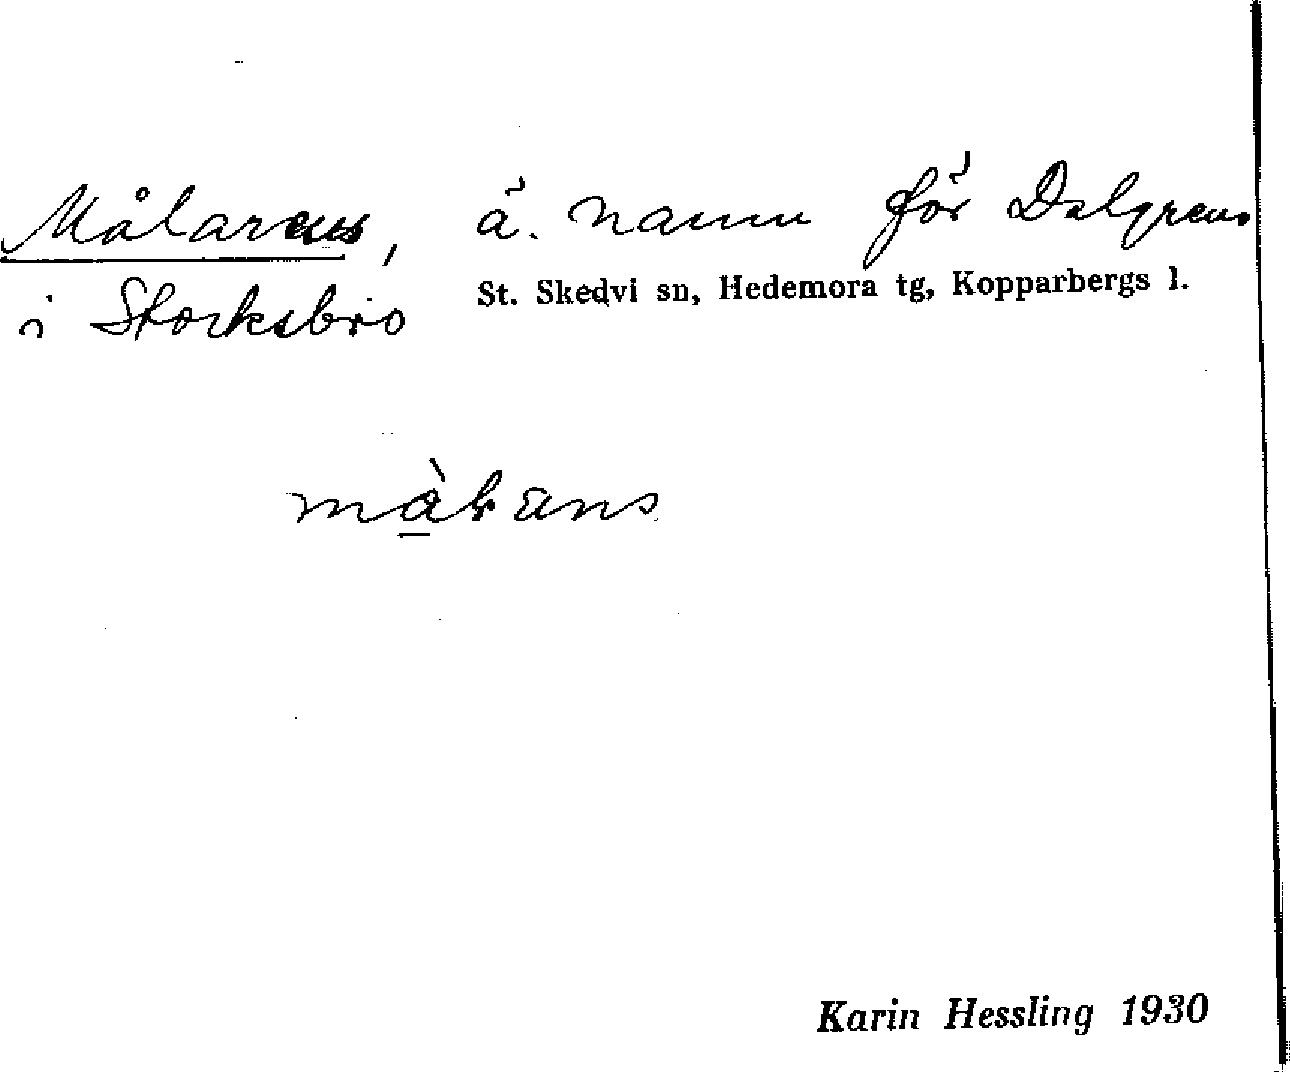 Målarens, ä. namn för Dalgrens
i Storksbro St. Skedvi sn, Hedemora tg, Kopparbergs l.
Karin Hessling 1930